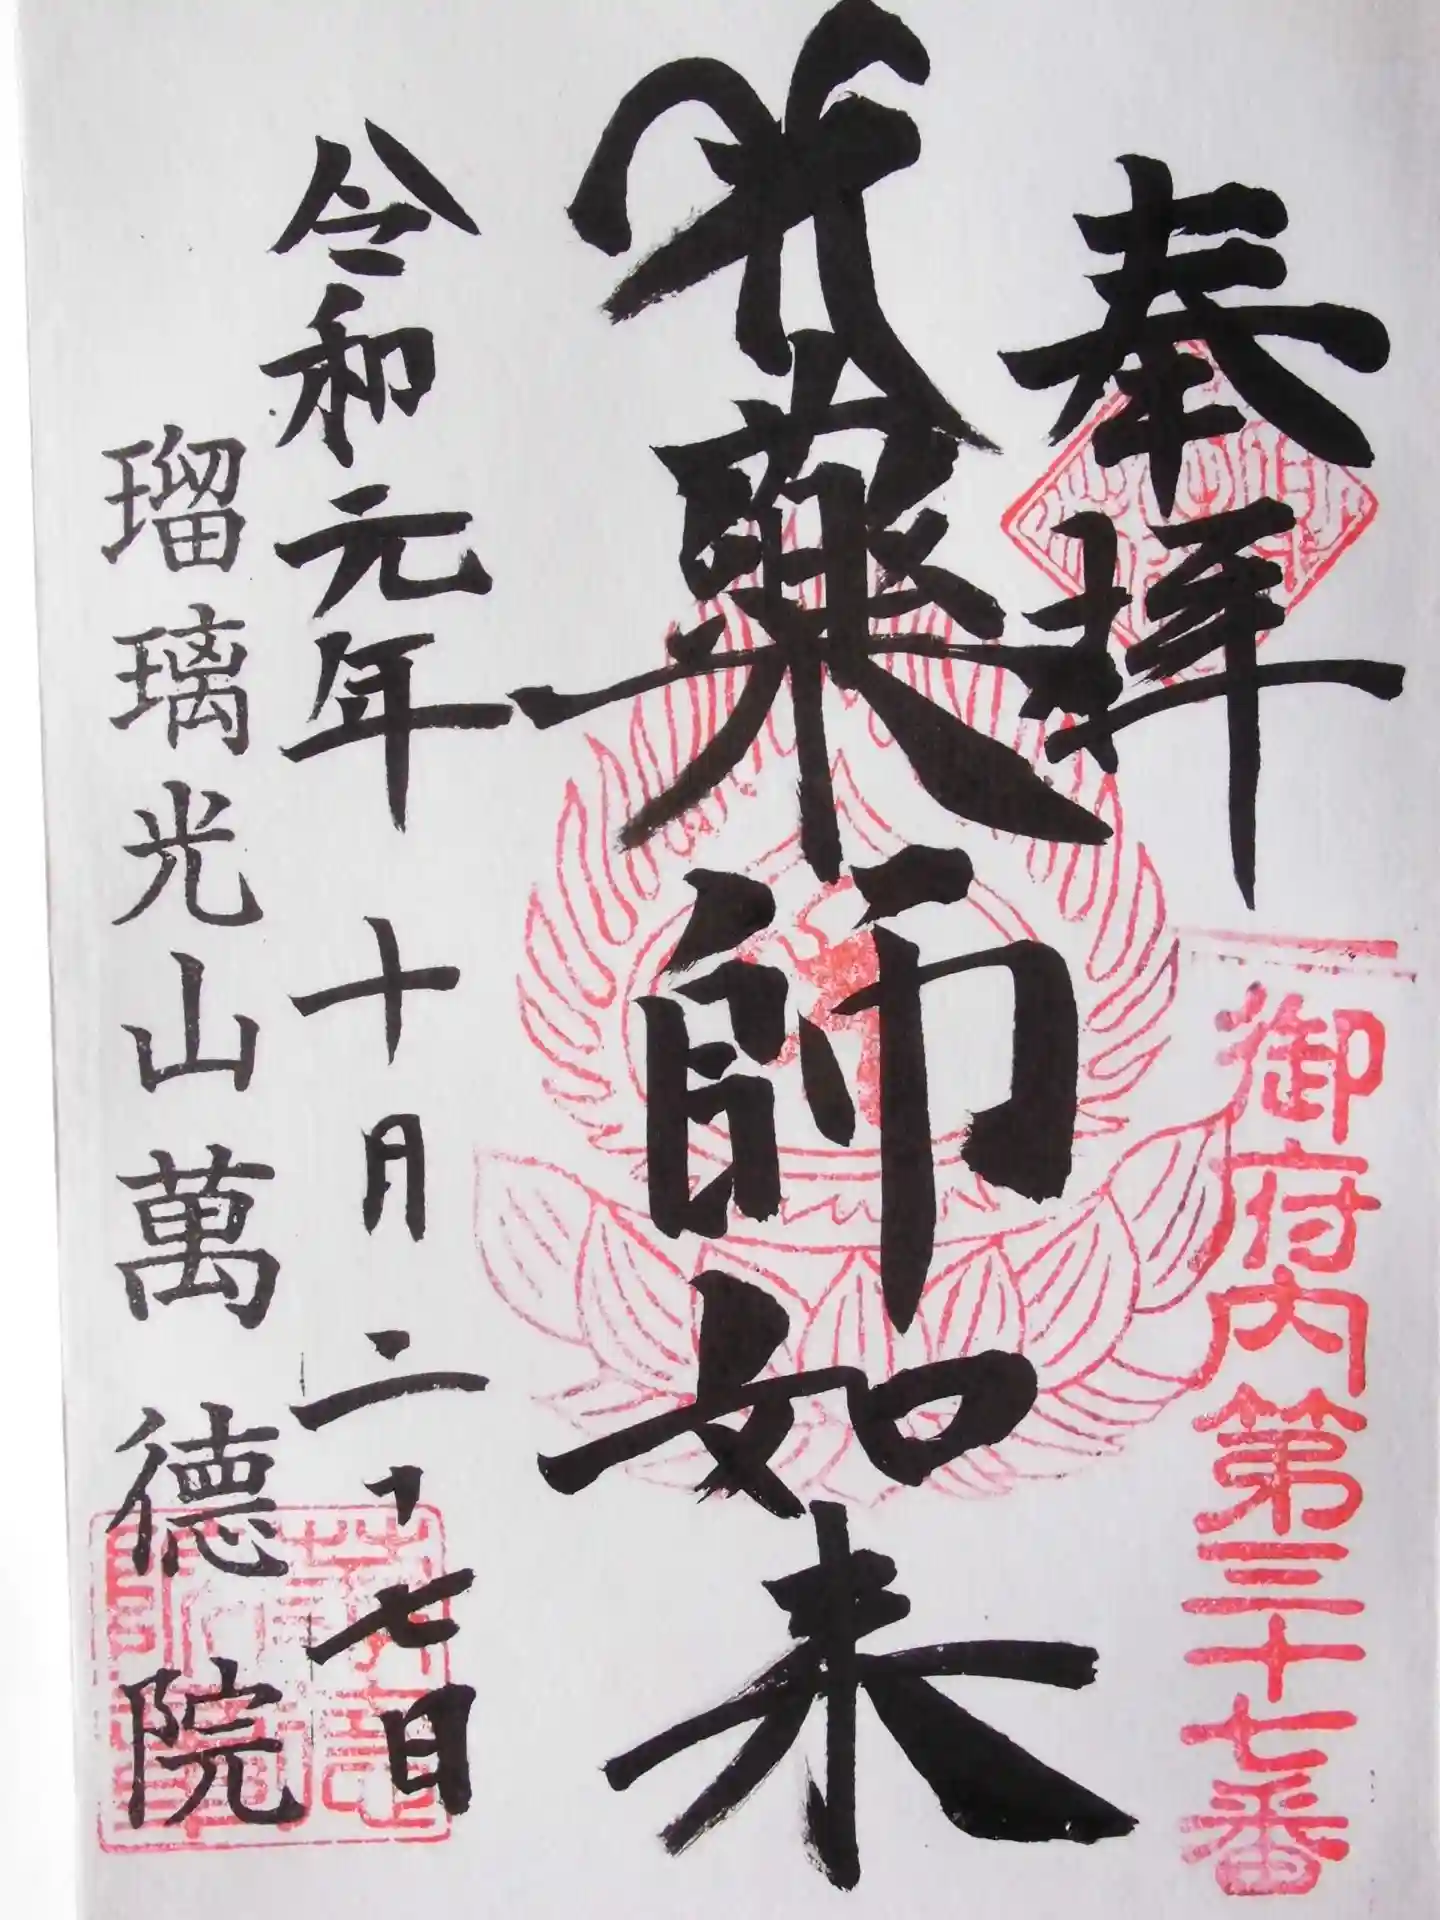 奉拝
御府内第三十七番
薬師如来
令和元年 十月二十七日
瑠璃光山萬德院